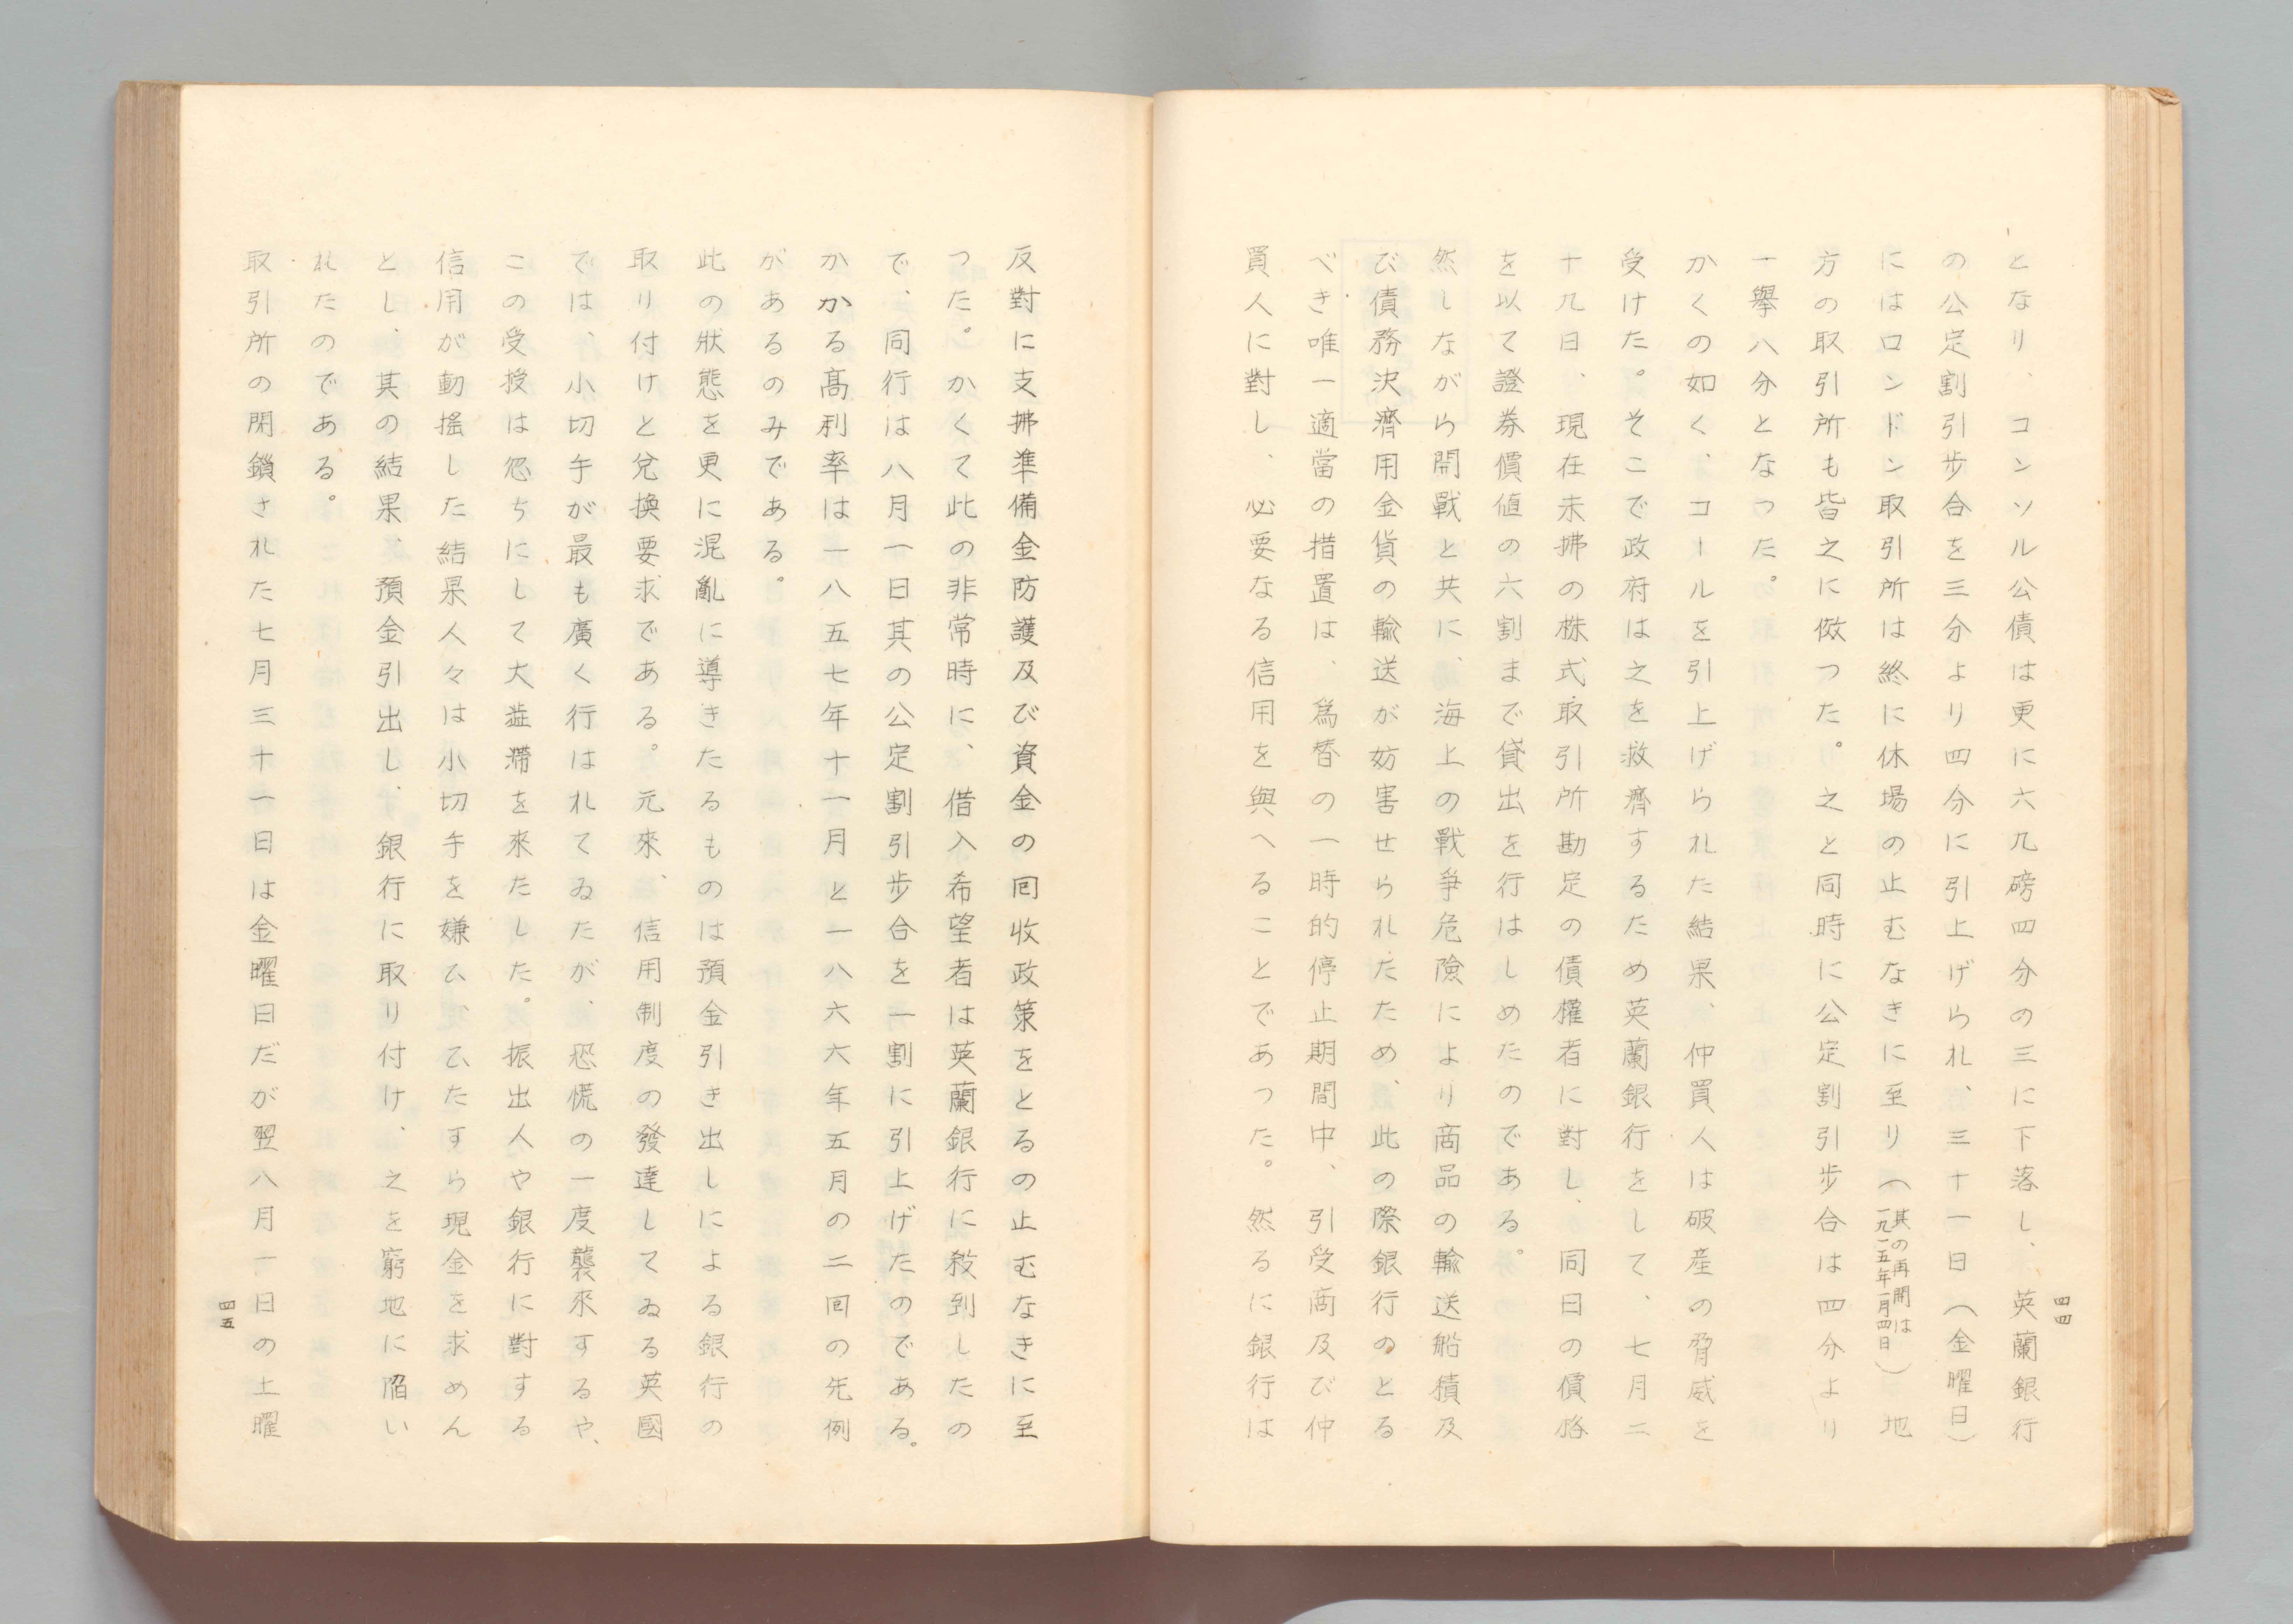 四四
となり、コンソル公債は更に六九磅四分の三に下落し、英蘭銀行
の公定割引歩合を三分より四分に引上げられ、三十一日（金曜日）
にはロンドン取引所は終に休場の止むなきに至り（其の再開は一九一五年一月四日）地
方の取引所も皆之に倣つた。之と同時に公定割引歩合は四分より
一擧八分となつた。
かくの如く、コールを引上げられた結果、仲買人は破産の脅威を
受けた。そこで政府は之を救濟するため英蘭銀行をして、七月二
十九日、現在未拂の株式取引所勘定の債權者に對し、同日の價格
を以て證券價値の六割まで貸出を行はしめたのである。
然しながら開戰と共に、海上の戰爭危險により商品の輸送船積及
び債務決濟用金貨の輸送が妨害せられたため、此の際銀行のとる
べき唯一適當の措置は、爲替の一時的停止期間中、引受商及び仲
買人に對し、必要なる信用を與へることであつた。然るに銀行は
反對に支拂準備金防護及び資金の囘收政策をとるの止むなきに至
つた。かくて此の非常時に、借入希望者は英蘭銀行に殺到したの
で、同行は八月一日其の公定割引歩合を一割に引上げたのである。
かかる高利率は一八五七年十一月と一八六六年五月の二回の先例
があるのみである。
此の狀態を更に混亂に導きたるものは預金引き出しによる銀行の
取り付けと兌換要求である。元來、信用制度の發達してゐる英國
では、小切手が最も廣く行はれてゐたが、恐慌の一度襲來するや、
この受授は忽ちにして大澁滯を來たした。振出人や銀行に對する
信用が動搖した結果人々は小切手を嫌ひ、ひたすら現金を求めん
とし、其の結果、預金引出し、銀行に取り付け、之を窮地に陷い
れたのである。
取引所の閉鎖された七月三十一日は金曜日だが翌八月一日の土曜
四五